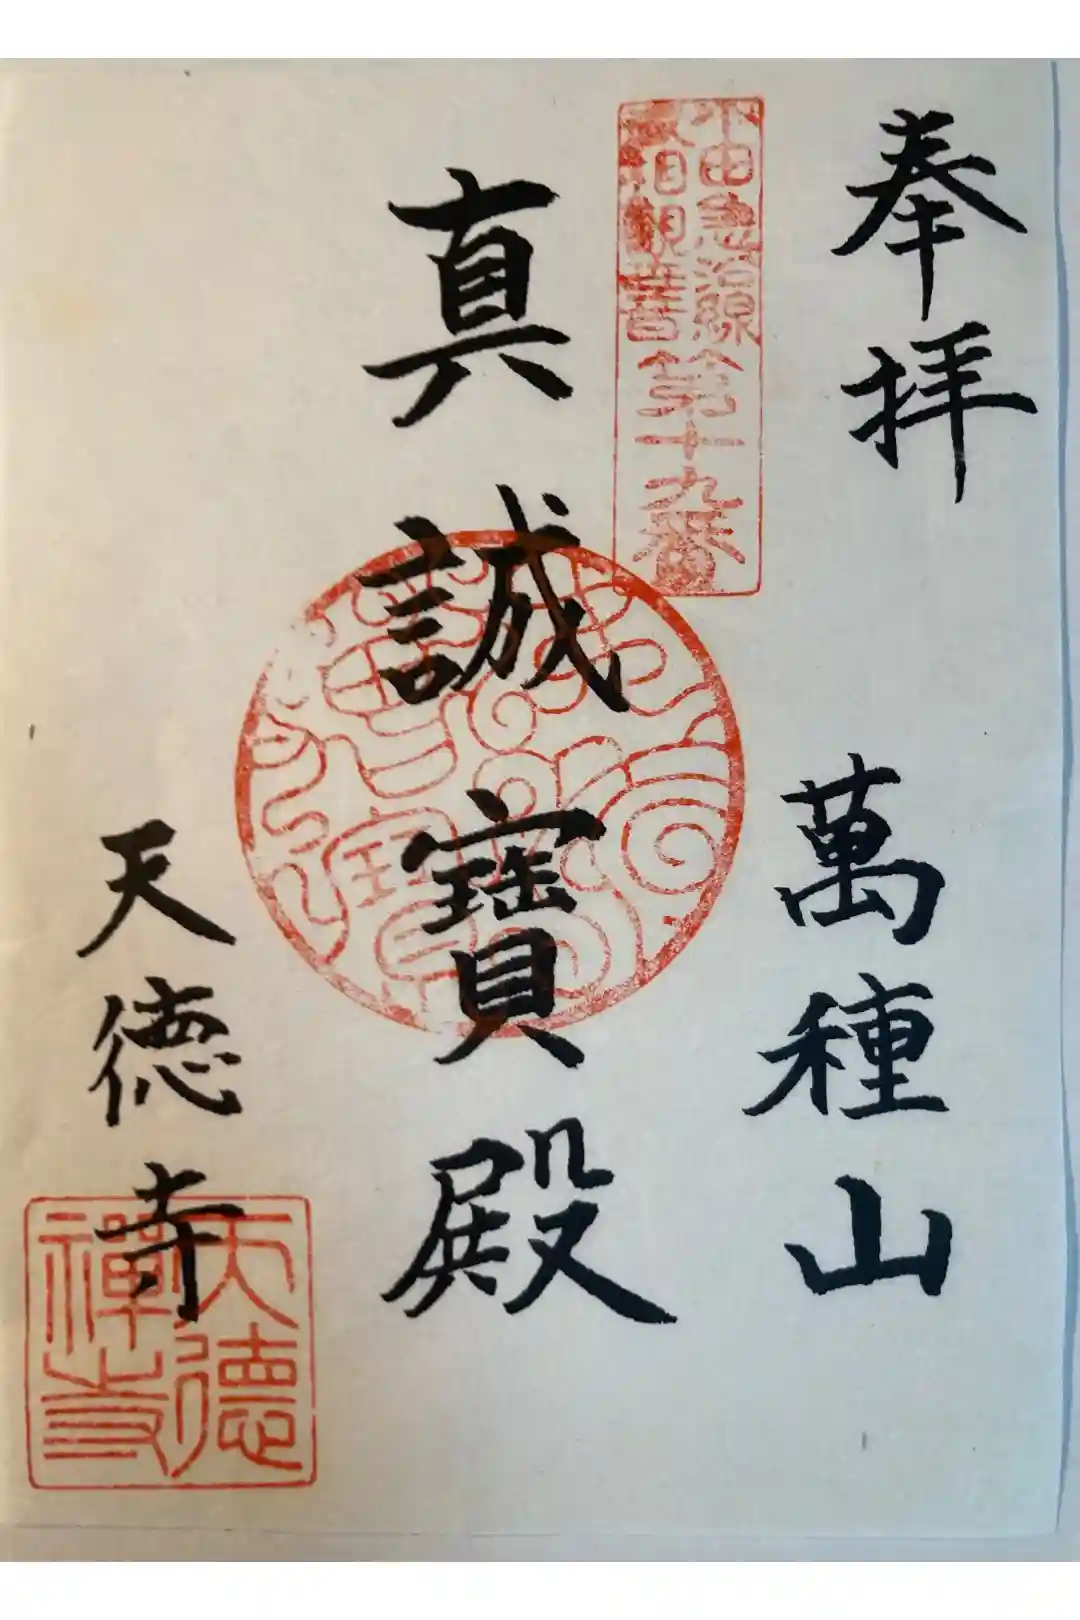 奉拝 萬種山
小田急沿線
観音
第十九番
真誠寶殿
天徳寺
天德
禪寺